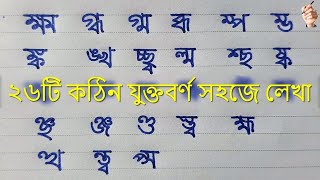 ক্ষ্ম গ্ধ গ্ম ব্ধ ম্প ম্ভ
ঙ্ক ঙ্খ চ্ছ্ব ল্ম শ্ছ ষ্ক
২৬টি কঠিন যুক্তবর্ণ সহজে লেখা
ঞ্ছ ঞ্জ ণ্ড স্থ হ্ম
ত্থ ন্ত্ব প্স